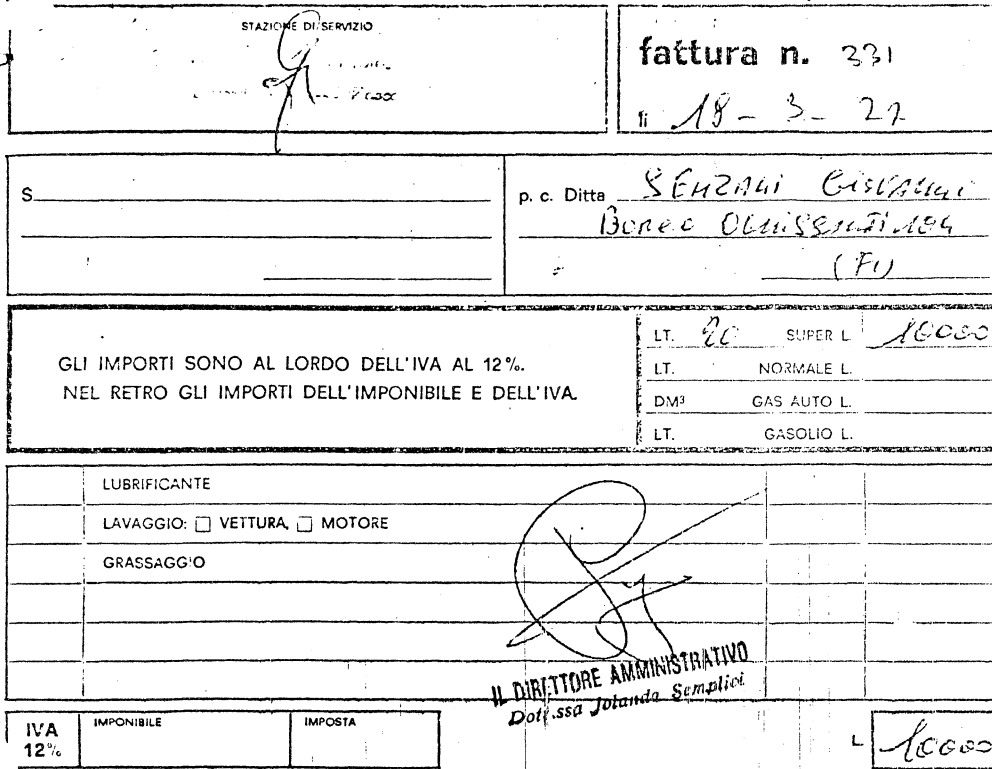 STAZIONE DI SERVIZIO
fattura n. 331
li 18 - 3 -
S
p. c. Ditta SENZANI GIOVANNI
BORGO OGNISSANTI
(FI)
GLI IMPORTI SONO AL LORDO DELL'IVA AL 12%.
NEL RETRO GLI IMPORTI DELL'IMPONIBILE E DELL'IVA.
LT. 20 SUPER L. 10000
LT. NORMALE L.
DM³ GAS AUTO L.
LT. GASOLIO L.
LUBRIFICANTE
LAVAGGIO: □ VETTURA, □ MOTORE
GRASSAGGIO
IL DIRETTORE AMMINISTRATIVO
Dott.ssa Jolanda Semplici
IVA 12%
IMPONIBILE
IMPOSTA
L 10000